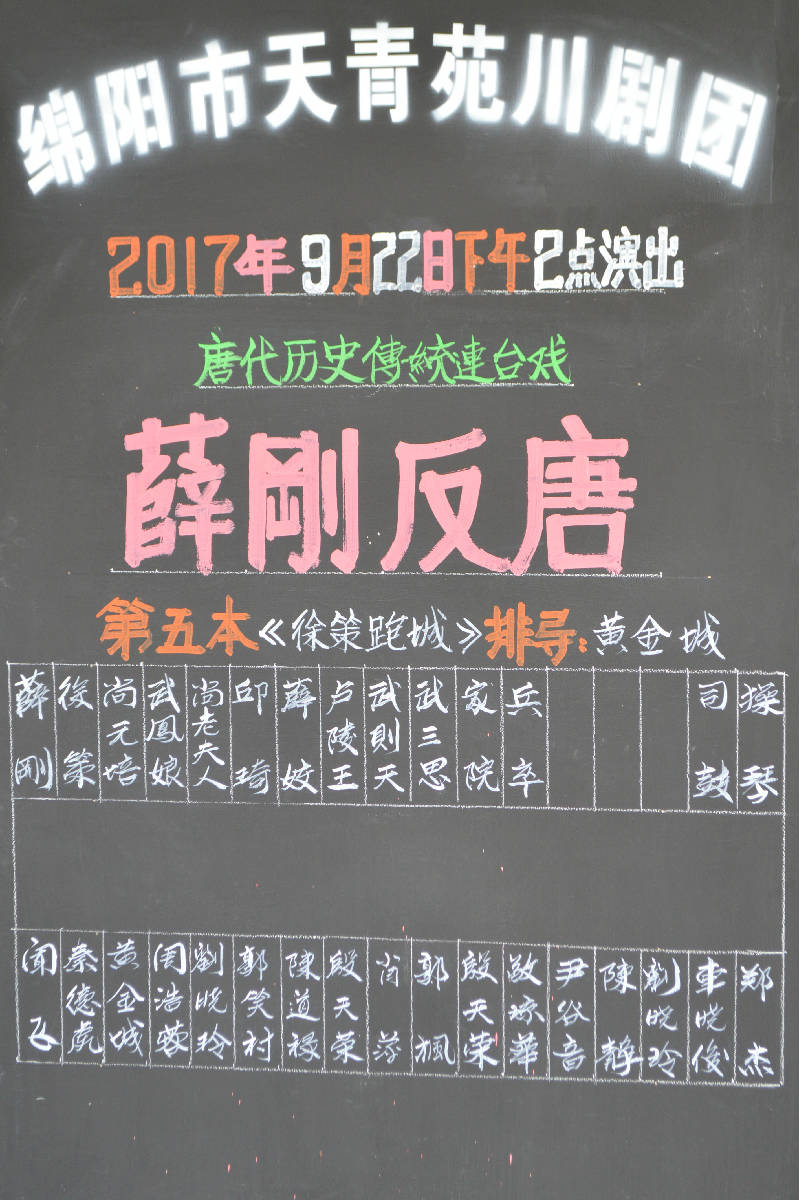 绵阳市天青苑川剧团
2017年9月22日下午2点演出
唐代历史傳統連台戏
薛剛反唐
第五本《徐策跑城》排导:黄金城
薛剛 徐策 尚元培 武鳳娘 尚老夫人 邱琦 薛姣 卢陵王 武則天 武三思 家院 兵卒 司鼓 操琴
闻飞 秦德虎 黄金城 周浩蓉 劉晓玲 郭笑村 陳道禄 殷天荣 肖蓉 郭楓 殷天荣 敬琼華 尹谷音 陳静 劉晓玲 車晓俊 郑杰